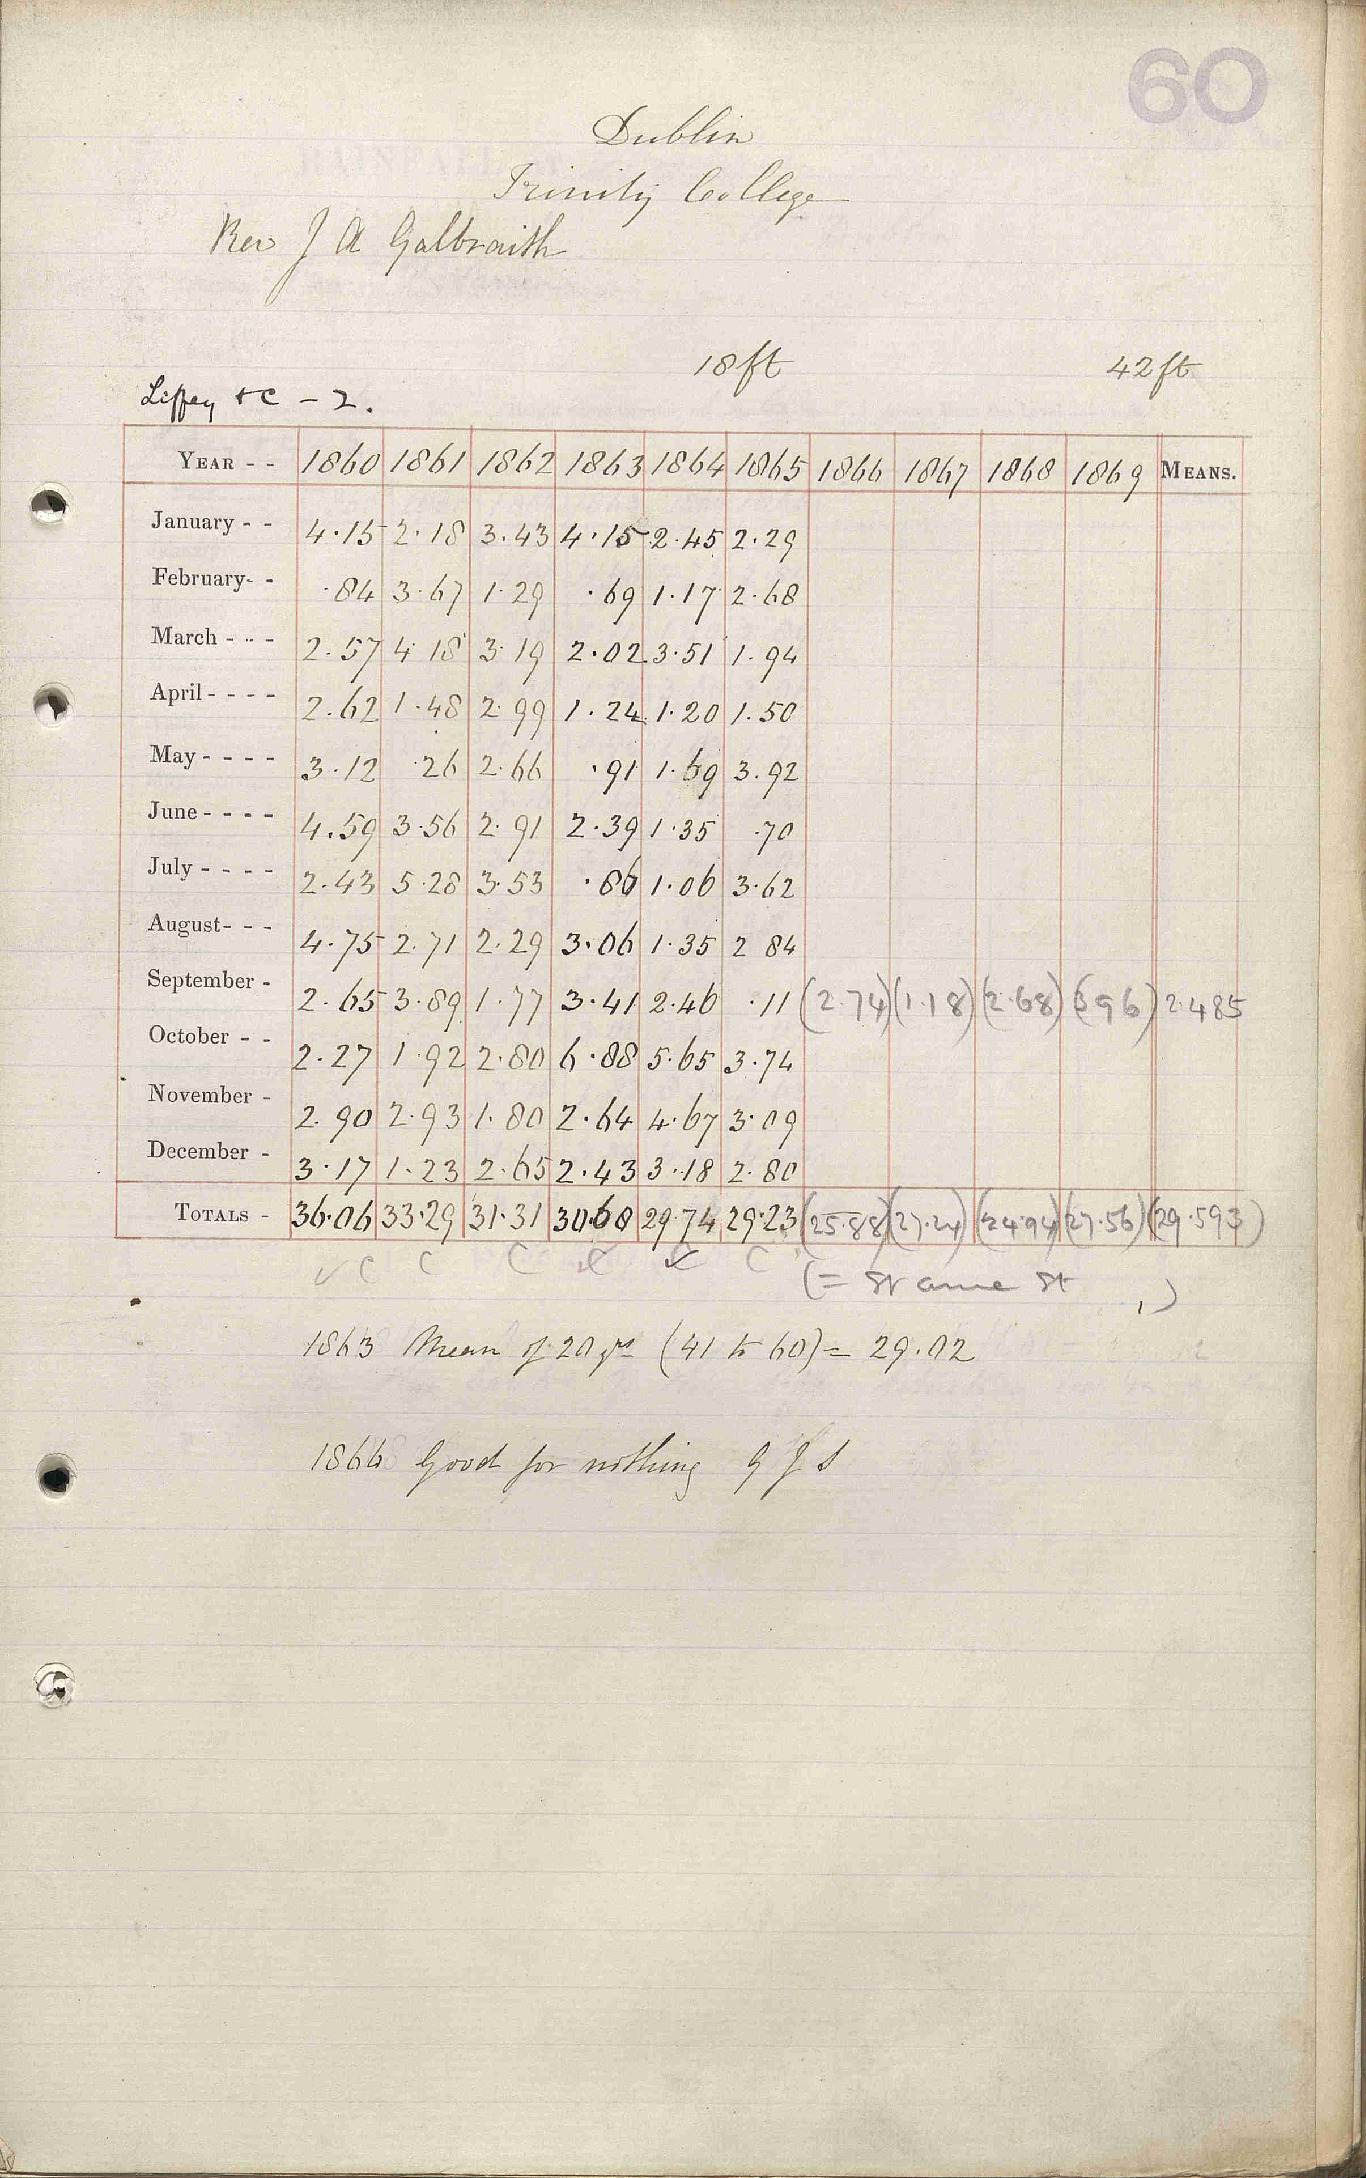 60
Dublin
Trinity College
Rev J A Galbraith
18ft 42ft
Liffey &c - 2.
YEAR - - 1860 1861 1862 1863 1864 1865 1866 1867 1868 1869 MEANS.
January - - 4.15 2.18 3.43 4.15 2.45 2.29
February- - .84 3.67 1.29 .69 1.17 2.68
March - - - 2.57 4.18 3.19 2.02 3.51 1.94
April - - - - 2.62 1.48 2.99 1.24 1.20 1.50
May - - - - 3.12 .26 2.66 .91 1.69 3.92
June - - - - 4.59 3.56 2.91 2.39 1.35 .70
July - - - - 2.43 5.28 3.53 .86 1.06 3.62
August- - - 4.75 2.71 2.29 3.06 1.35 2 84
September - 2.65 3.89 1.77 3.41 2.46 .11 (2.74) (1.18) (2.68) (3.96) 2.485
October - - 2.27 1.92 2.80 6.88 5.65 3.74
November - 2.90 2.93 1.80 2.64 4.67 3.09
December - 3.17 1.23 2.65 2.43 3.18 2.80
TOTALS - 36.06 33.29 31.31 30.68 29.74 29.23 (25.88) (27.24) (24.94) (27.56) (29.593)
C C C C C C
(= St Anne St ,)
1863 Mean of 20 yrs (41 to 60) = 29.02
1866 Good for nothing G J S